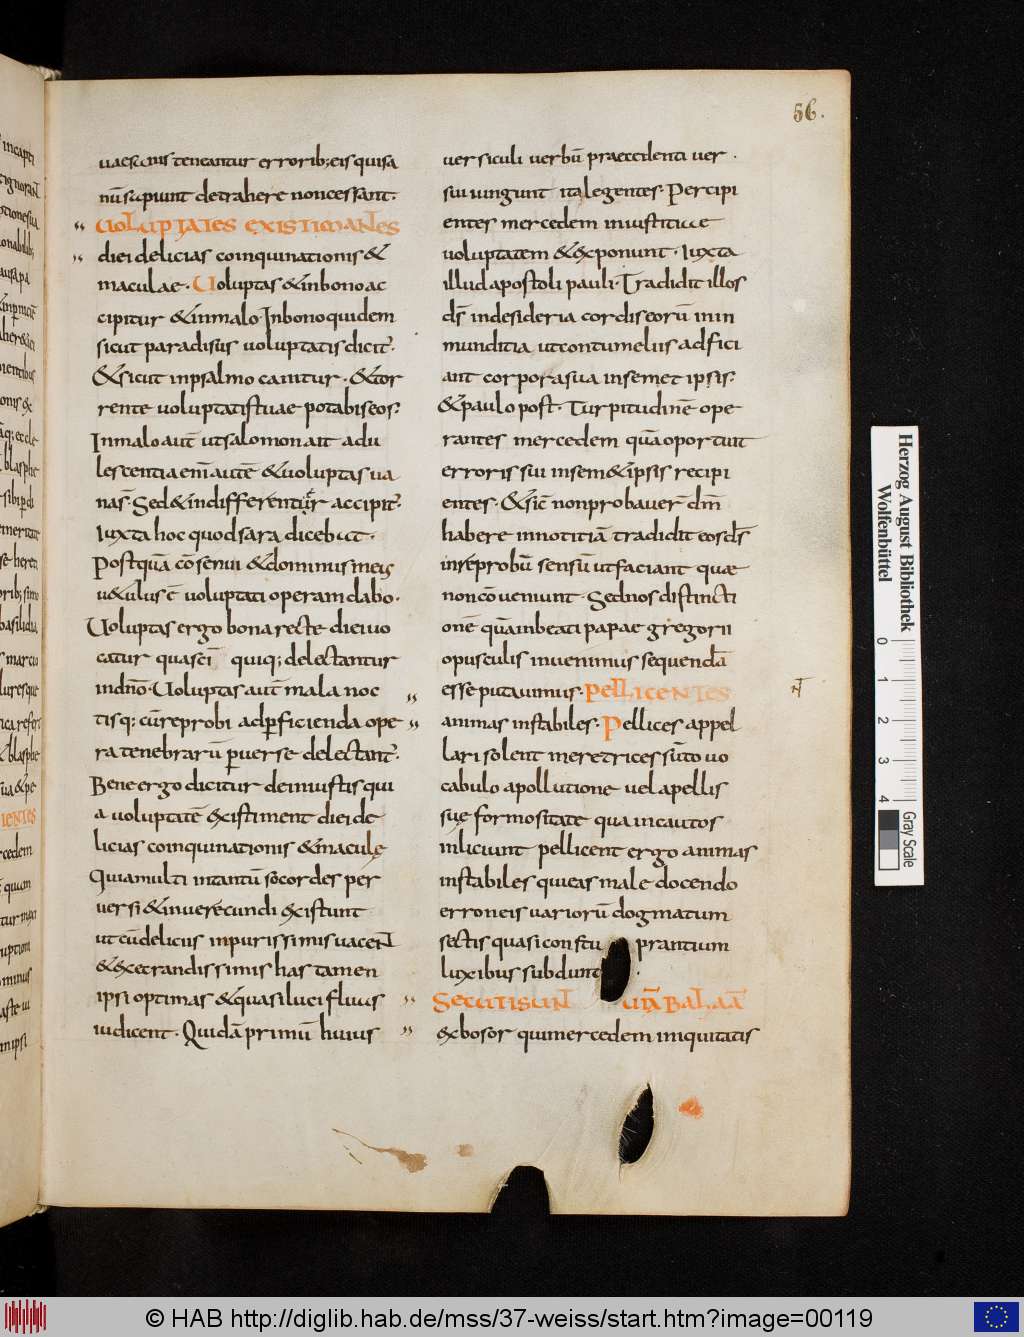 56.
uaesanis teneantur errorib; eis qui sa
nū sapiunt detrahere non cessant.
UOLUPTATES EXISTIMANTES
diei delicias coinquinationis &
maculae. Uoluptas & inbono ac
cipitur & inmalo. Inbono quidem
sicut paradisus uoluptatis dicit̄.
& sicut inpsalmo canitur. & tor
rente uoluptatis tuae potabis eos.
Inmalo aut̄ ut salomon ait adu
lescentia em̄ autē & uoluptas ua
nas̄. Sed & indifferentur accipit̄.
Iuxta hoc quod sara dicebat.
Postquā cōsenui & dominus meus
u&ulus ē uoluptati operam dabo.
Uoluptas ergo bona recte diei uo
catur quasei quiq; delectantur
indn̄o. Uoluptas aut̄ mala noc
tisq; cū reprobi adp̄ficienda ope
ra tenebrarū p̄uerse delectant̄.
Bene ergo dicitur deiniustis qui
a uoluptatē existiment diei de
licias coinquinationis & maculę
Quia multi intantū socordes per
uersi & inuerecundi existunt
ut cū deliciis inpurissimis uacent
& execrandissimis has tamen
ipsi optimas & quasi luci fluus
iudicent. Quidā primū huius
uersiculi uerbū praecedenti uer.
sui iungunt ita legentes. Percipi
entes mercedem iniustitiae
uoluptatem & exponunt. Iuxta
illud apostoli pauli. Tradidit illos
ds̄ indesideria cordis eorū in in
munditia ut contumeliis adfici
ant corpora sua insemet ipsis.
& paulo post. Turpitudinē ope
rantes mercedem quā oportuit
erroris sui insem&ipsis recipi
entes. & sic̄ non probauer̄ dm̄
habere innotitiā tradidit eos ds̄
inreprobū sensū ut faciant quae
non cōueniunt. Sed nos distincti
onē quā inbeati papae gregorii
opusculis inuenimus sequendā
esse putauimus. PELLICENTES
animas instabiles. Pellices appel
lari solent meretrices siue uo
cabulo apollutione uel apellis
suę formositate qua incautos
inliciunt pellicent ergo animas
instabiles qui eas male docendo
erroneis uariorū dogmatum
sectis quasi con stu prantium
luxibus subdunt.
SECUTI SUNT UIĀ BALAĀ
ex bosor qui mercedem iniquitatis
Herzog August Bibliothek
Wolfenbüttel
0 1 2 3 4
Gray Scale
© HAB http://diglib.hab.de/mss/37-weiss/start.htm?image=00119